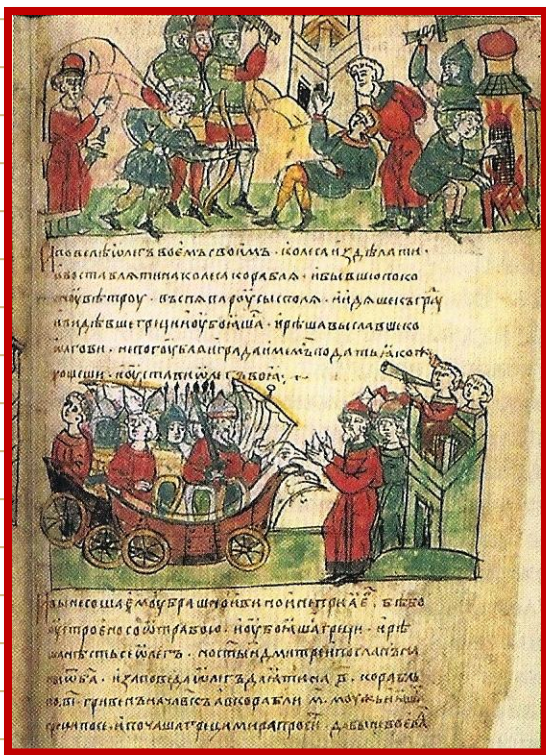 И повелѣ ѡлегъ воємъ своимъ · колеса издѣлати ·
и воставляти на колеса корабля · и бывшю поко
сноу вѣтроу · въспя пароусы с поля · и идяше къ градоу
и видѣвше греци и оубояша · и рѣша выславше ко
ѡлгови · не погоубляи града имемъ подать яко
хощеши · и оустави ѡлегъ вои ·
И вынесоша ємоу брашно и вино и не прия є · бѣ бо
оустроєно со ѿтравою · и оубояша греци · и рѣ
ша нѣсть се ѡлегъ · но сты дмитреи посланъ на
ны ѿ ба · и заповеда ѡлегъ даяти на в҃ · корабль
по в҃і · гривенъ на чавкъ а в корабли м҃ · моужь и яша
греци по се · и почаша греци мира просі · дабы не воєва